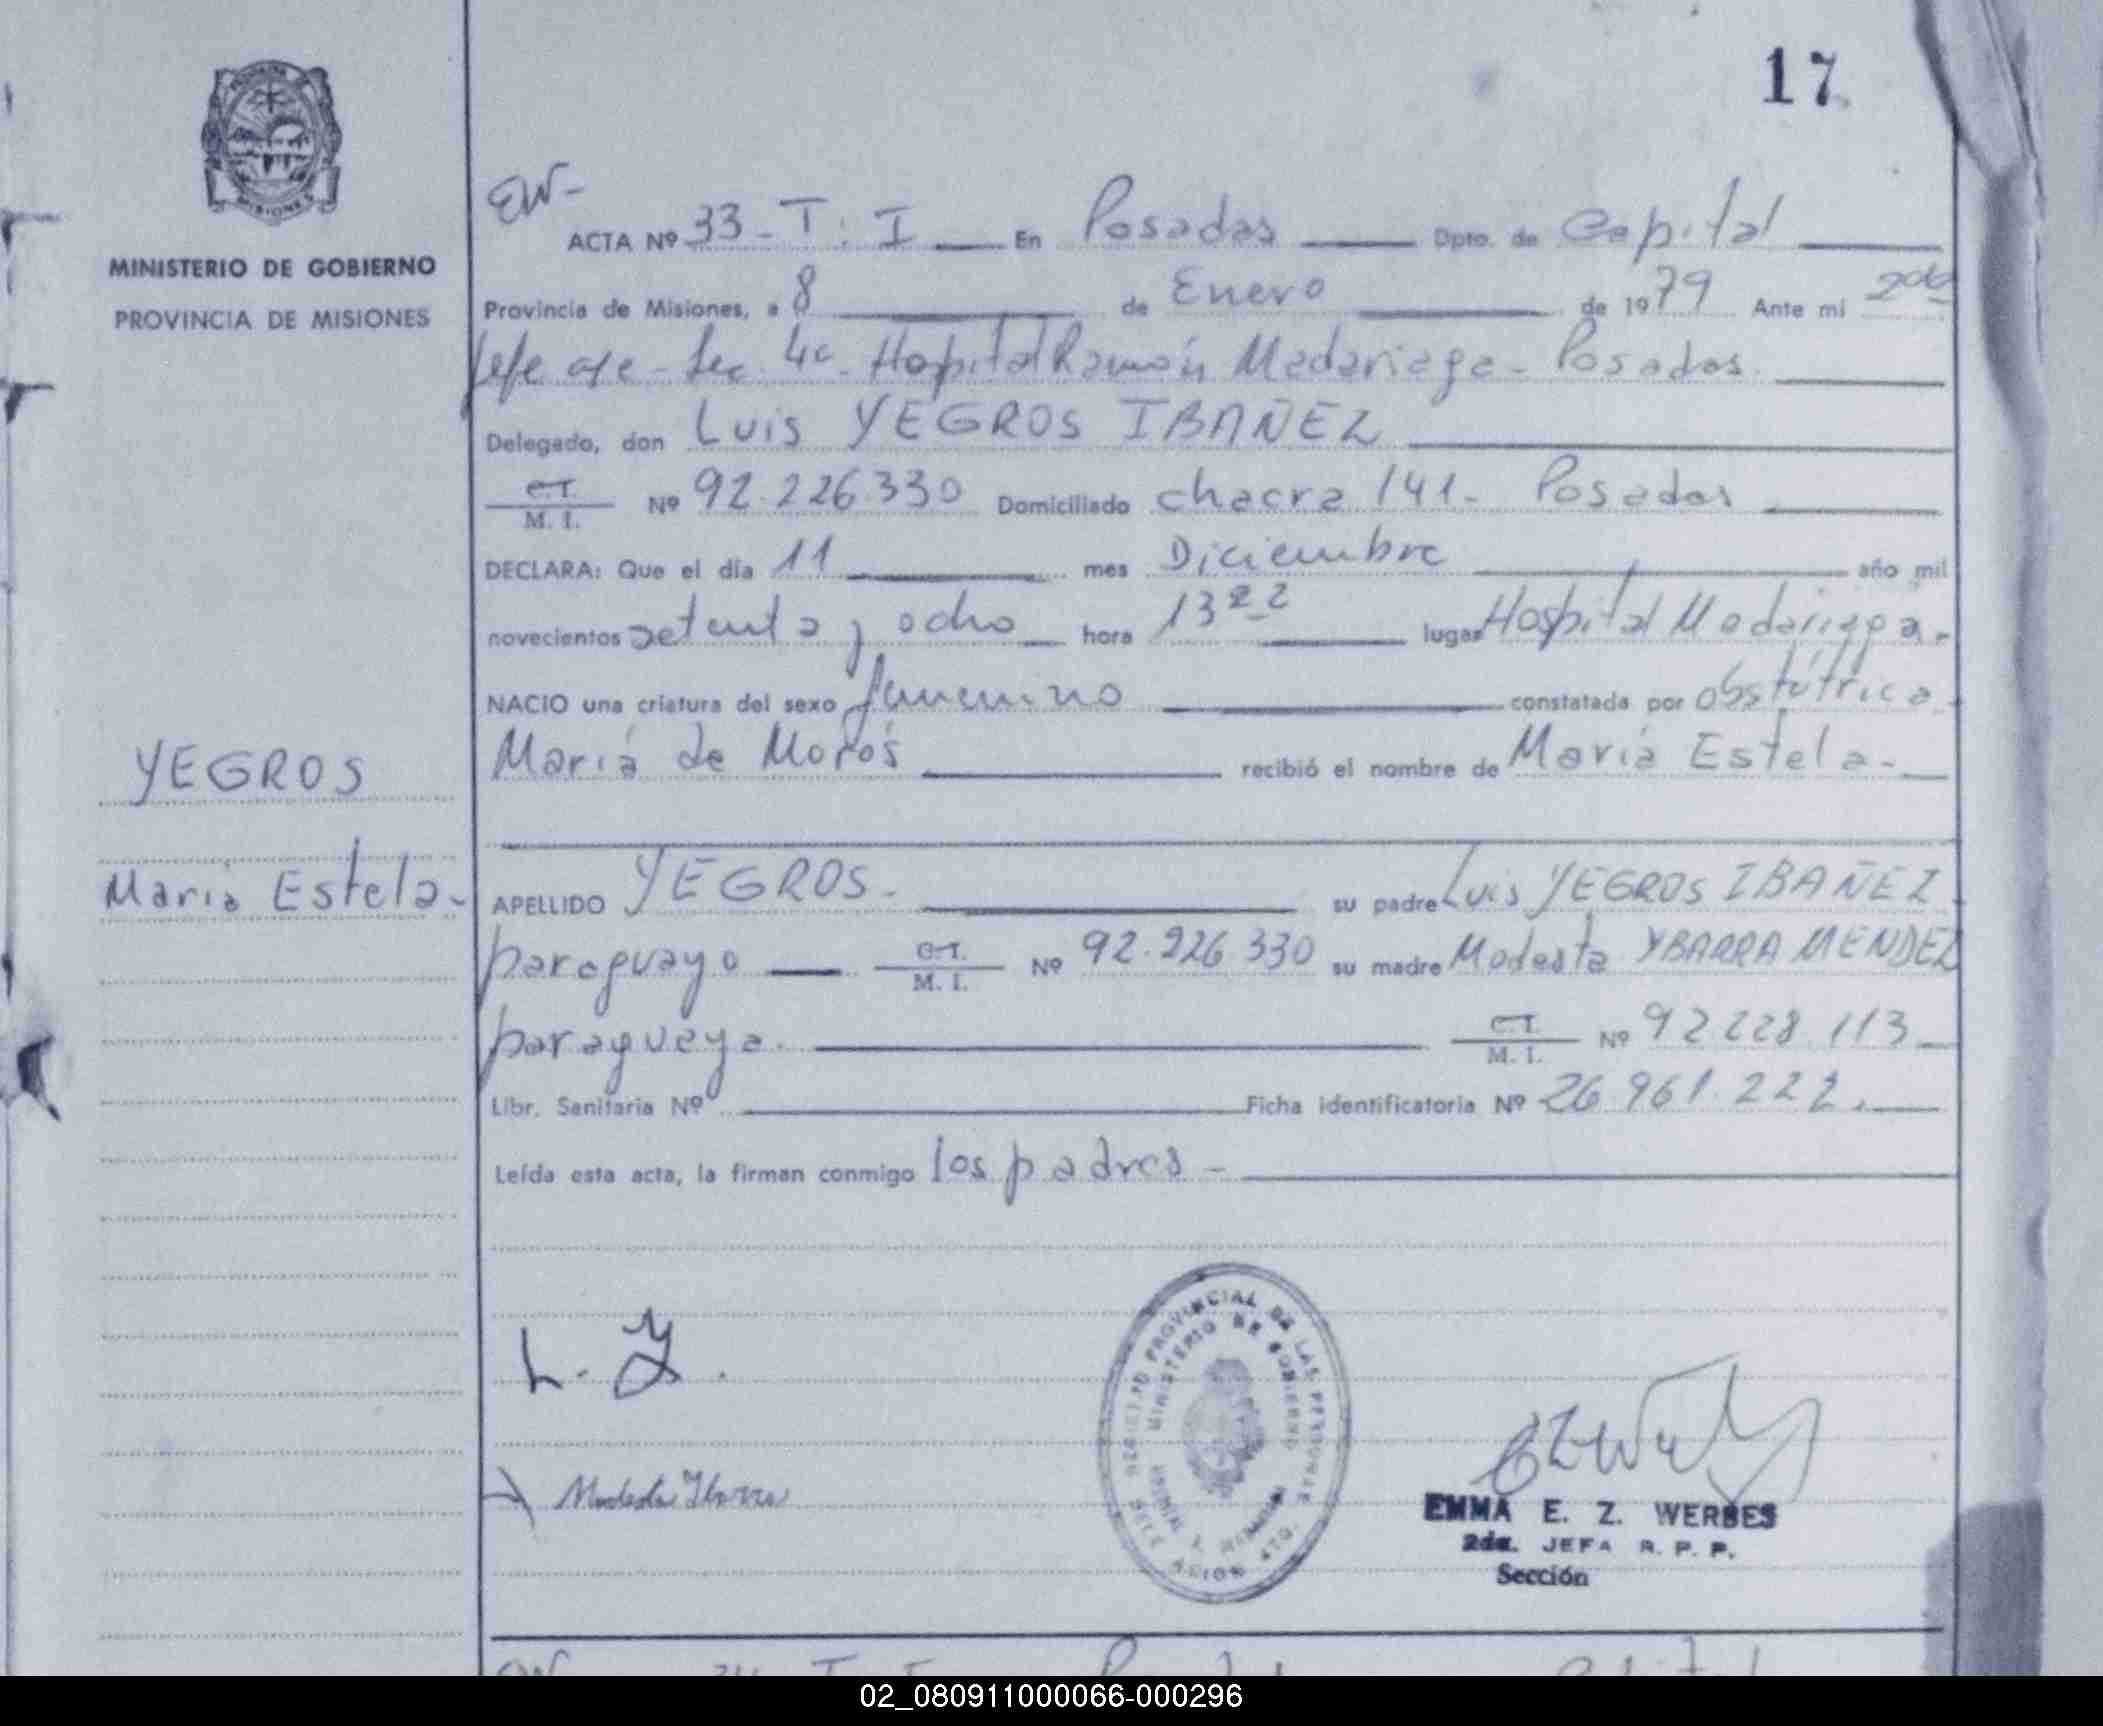 17
MISIONES
MINISTERIO DE GOBIERNO
PROVINCIA DE MISIONES
EW-
ACTA Nº 33 - T. I En Posadas Dpto. de Capital
Provincia de Misiones, a 8 de Enero de 1979 Ante mi 2da
Jefe a/c - Sec. 4a - Hospital Ramón Madariaga - Posadas
Delegado, don Luis YEGROS IBAÑEZ
C.I.
M. I. Nº 92.226.330 Domiciliado chacra 141 - Posadas
DECLARA: Que el día 11 mes Diciembre año mil
novecientos setenta y ocho hora 13 22 lugar Hospital Madariaga -
NACIO una criatura del sexo femenino constatada por obstétrica
María de Morós recibió el nombre de María Estela -
YEGROS
María Estela -
APELLIDO YEGROS - su padre Luis YEGROS IBAÑEZ
paraguayo C.I.
M. I. Nº 92.226.330 su madre Modesta YBARRA MENDEZ
paraguaya. C.I.
M. I. Nº 92.228.113
Libr. Sanitaria Nº Ficha identificatoria Nº 26.961.222.
Leída esta acta, la firman conmigo los padres -
L. Y.
Modesta Ibarra
PROVINCIAL DE LAS PERSONAS
MINISTERIO DE GOBIERNO
EMMA E. Z. WERBES
2da. JEFA R. P. P.
Sección
02_080911000066-000296